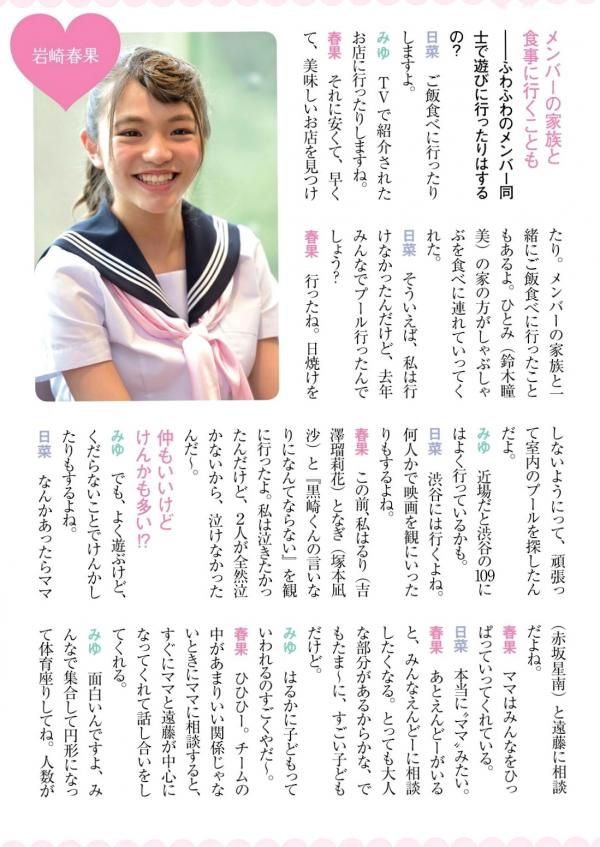 岩崎春果
メンバーの家族と
食事に行くことも
――ふわふわのメンバー同
士で遊びに行ったりはする
の?
日菜 ご飯食べに行ったり
しますよ。
みゆ TVで紹介された
お店に行ったりしますね。
春果 それに安くて、早く
て、美味しいお店を見つけ
たり。メンバーの家族と一
緒にご飯食べに行ったこと
もあるよ。ひとみ(鈴木瞳
美)の家の方がしゃぶしゃ
ぶを食べに連れていってく
れた。
日菜 そういえば、私は行
けなかったんだけど、去年
みんなでプール行ったんで
しょう?
春果 行ったね。日焼けを
しないようにって、頑張っ
て室内のプールを探したん
だよ。
みゆ 近場だと渋谷の109に
はよく行っているかも。
日菜 渋谷には行くよね。
何人かで映画を観にいった
りもするよね。
春果 この前、私はるり(吉
澤瑠莉花)となぎ(塚本凪
沙)と『黒崎くんの言いな
りになんてならない』を観
に行ったよ。私は泣きたかっ
たんだけど、2人が全然泣
かないから、泣けなかった
んだ〜。
仲もいいけど
けんかも多い!?
みゆ でも、よく遊ぶけど、
くだらないことでけんかし
たりもするよね。
日菜 なんかあったらママ
(赤坂星南)と遠藤に相談
だよね。
春果 ママはみんなをひっ
ぱっていってくれている。
日菜 本当に〝ママ〟みたい。
春果 あとえんどーがいる
と、みんなえんどーに相談
したくなる。とっても大人
な部分があるからかな、で
もたま〜に、すごい子ども
だけど。
みゆ はるかに子どもって
いわれるのすごくやだ〜。
春果 ひひひー。チームの
中があまりいい関係じゃな
いときにママに相談すると、
すぐにママと遠藤が中心に
なってくれて話し合いをし
てくれる。
みゆ 面白いんですよ、み
んなで集合して円形になっ
て体育座りしてね。人数が